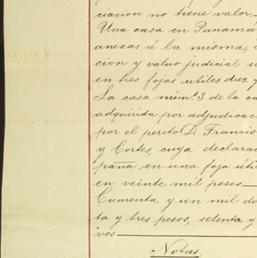 ciacion no tiene valor
Una casa en Panamá
anexas á la misma,
cion y valuo judicial su
en tres fojas utiles diez y
La casa núm. 3 de la ca
adquirida por adjudicac
por el perito D. Francis
y Cortes, cuya declarac
paña en una foja útil
en veinte mil pesos
Cuarenta y un mil do
ta y tres pesos, setenta y
vos
Notas.